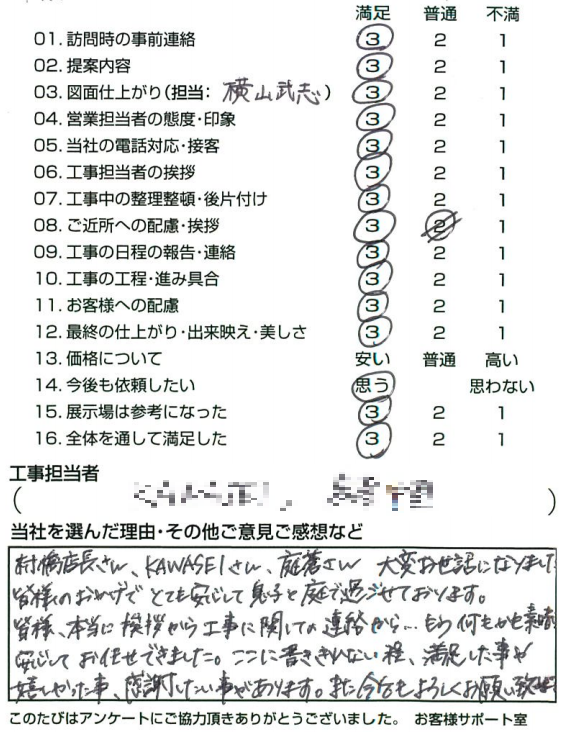 満足 普通 不満
01. 訪問時の事前連絡 3 2 1
02. 提案内容 3 2 1
03. 図面仕上がり(担当: 横山武志) 3 2 1
04. 営業担当者の態度・印象 3 2 1
05. 当社の電話対応・接客 3 2 1
06. 工事担当者の挨拶 3 2 1
07. 工事中の整理整頓・後片付け 3 2 1
08. ご近所への配慮・挨拶 3 2 1
09. 工事の日程の報告・連絡 3 2 1
10. 工事の工程・進み具合 3 2 1
11. お客様への配慮 3 2 1
12. 最終の仕上がり・出来映え・美しさ 3 2 1
13. 価格について 安い 普通 高い
14. 今後も依頼したい 思う 思わない
15. 展示場は参考になった 3 2 1
16. 全体を通して満足した 3 2 1
工事担当者
( )
当社を選んだ理由・その他ご意見ご感想など
村橋店長さん、KAWASEIさん、庭蒼さん 大変お世話になりまし
皆様のおかげで とても安心して 息子と庭で過ごせております。
皆様、本当に挨拶から工事に関しての連絡から… もう何もかも
安心して お任せできました。ここに書ききれない程、満足した事や
嬉しかった事、感謝したい事があります。また今後もよろしくお願い致
このたびはアンケートにご協力頂きありがとうございました。 お客様サポート室